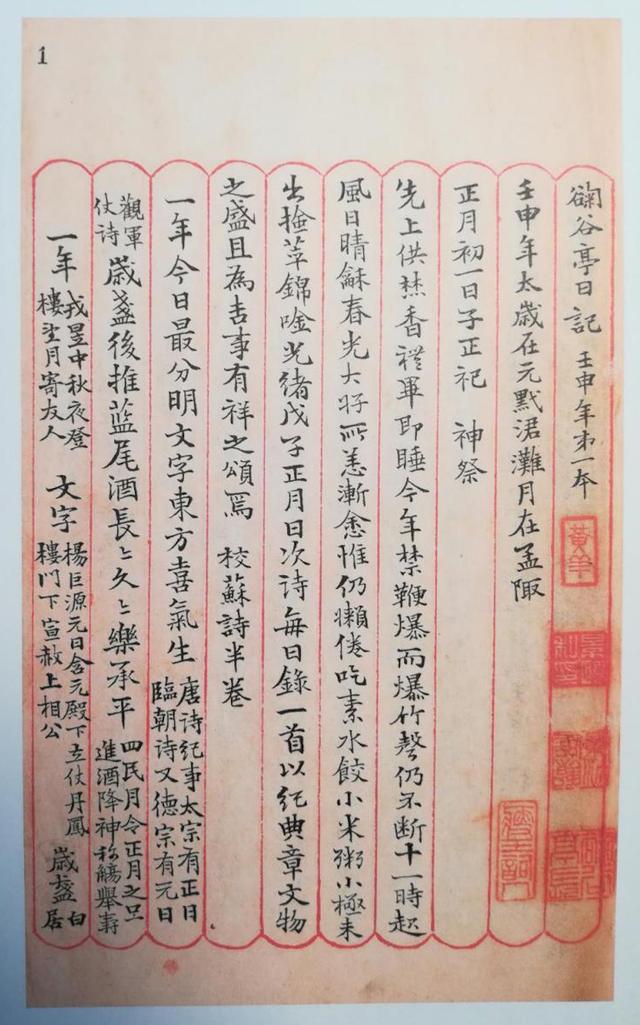 谷亭日記 壬申年第一本
黃羊
壬申年太歲在元默涒灘月在孟陬
正月初一日子正祀 神祭
先上供焚香禮畢即睡今年禁鞭爆而爆竹聲仍不斷十一時起
風日晴龢春光大好所恙漸愈惟仍懶倦吃素水餃小米粥小極未
出撿萃錦唫光緒戊子正月日次詩每日錄一首以紀典章文物
之盛且為吉事有祥之頌焉 校蘇詩半卷
一年今日最分明文字東方喜氣生 唐詩紀事太宗有正日臨朝詩又德宗有元日
觀軍仗詩 歲盞後推藍尾酒長〻久〻樂承平 四民月令正月之旦進酒降神称觴舉壽
一年 戎昱中秋夜登樓望月寄友人 文字 楊巨源元日含元殿下立仗丹鳳樓門下宣赦上相公 歲盞 白居
1